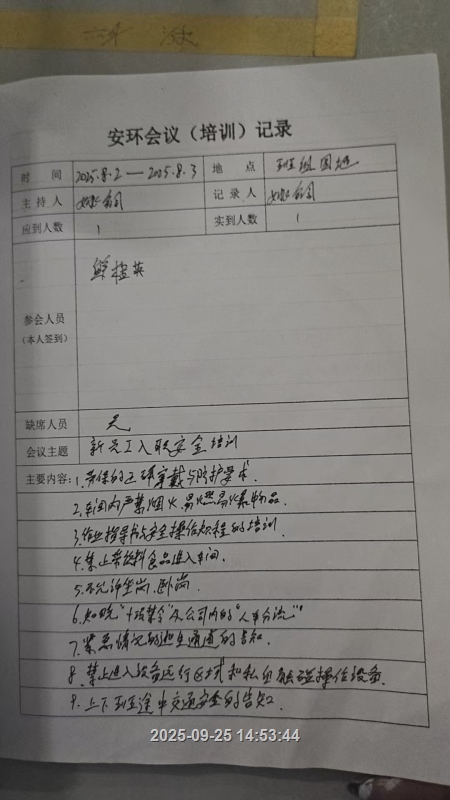 安环会议（培训）记录
时 间 2025.8.2 — 2025.8.3 地 点 班组园地
主持人 记录人
应到人数 1 实到人数 1
参会人员
（本人签到）
缺席人员 无
会议主题 新员工入职安全培训
主要内容：1.劳保的正确穿戴与防护要求.
2.车间内严禁烟火、易燃易爆物品.
3.作业指导书及安全操作规程的培训.
4.禁止带饮料食品进入车间.
5.不允许坐岗、卧岗.
6.知晓“十项禁令”及公司内的“人车分流”.
7.紧急情况的逃生通道的告知.
8.禁止进入设备运行区域和私自触碰操作设备.
9.上下班途中交通安全的告知.
2025-09-25 14:53:44